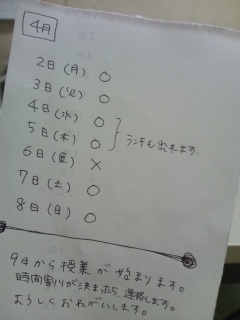 4月
2日(月) ○
3日(火) ○
4日(水) ○
5日(木) ○
ランチも出れます。
6日(金) ×
7日(土) ○
8日(日) ○
9日から授業が始まります。
時間割りが決まったら、連絡します。
よろしくおねがいします。